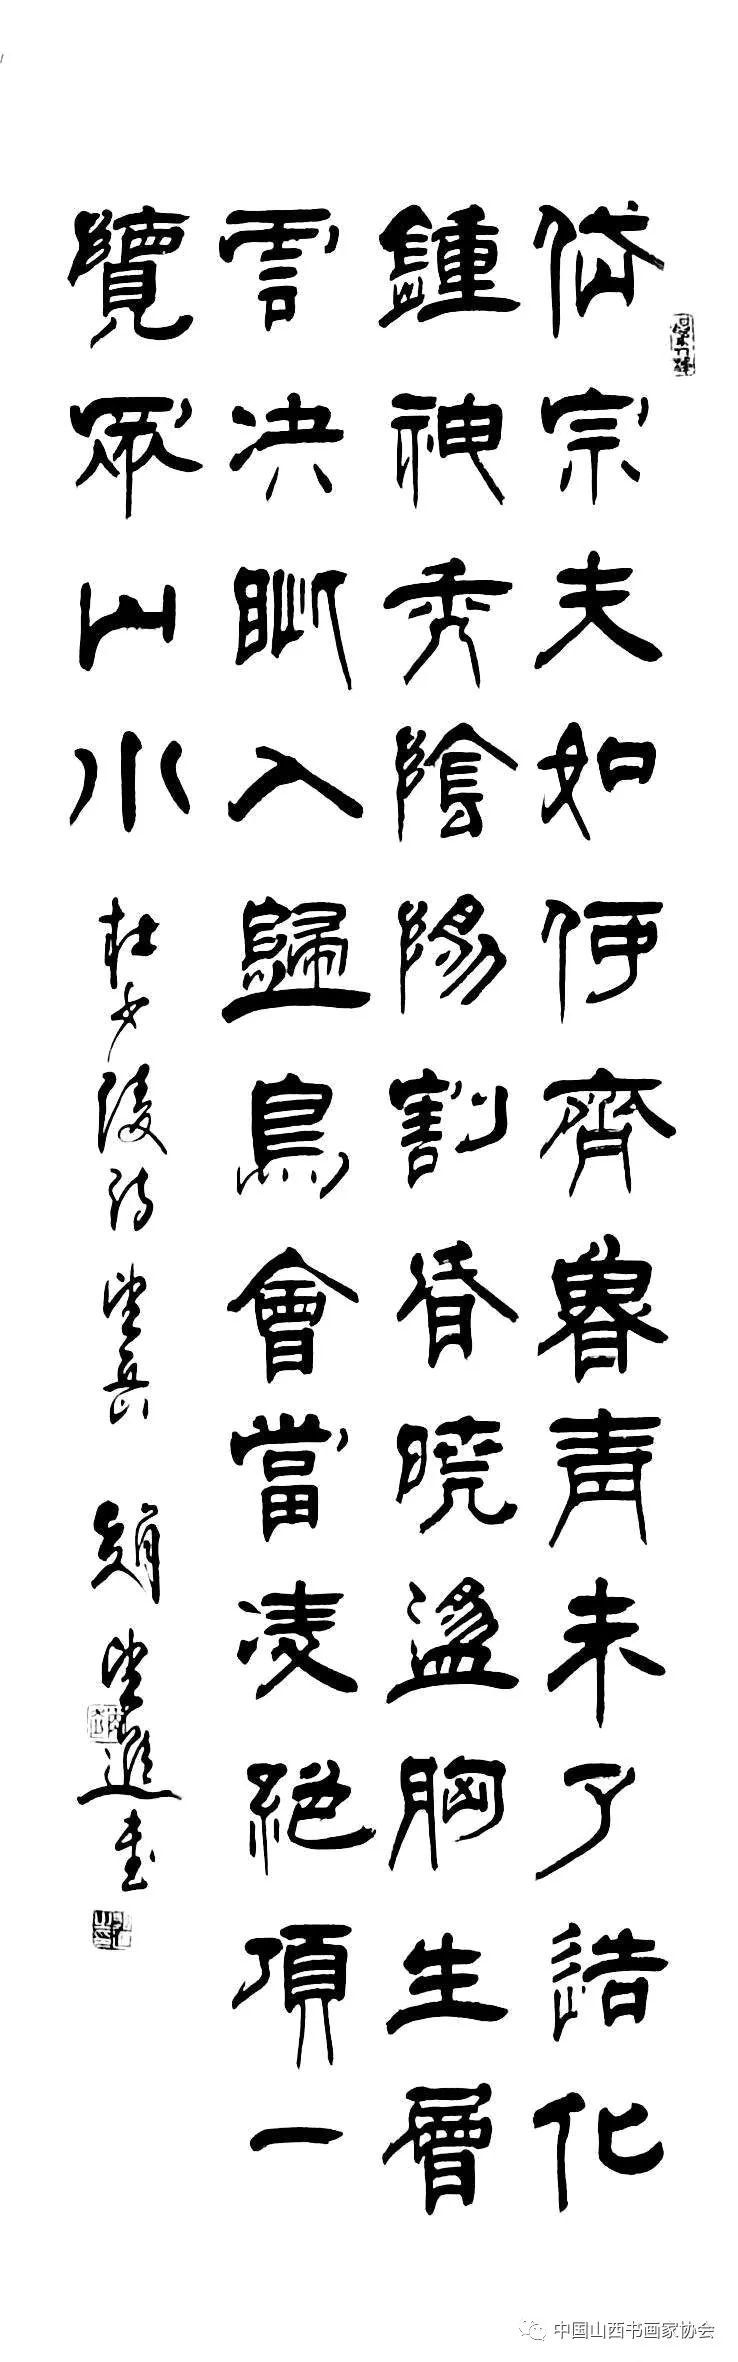 岱宗夫如何齊魯青未了造化
鍾神秀陰陽割昏曉盪胸生層
雲決眦入歸鳥會當凌絕頂一
覽眾山小 杜少陵詩望岳 趙望進書
中国山西书画家协会